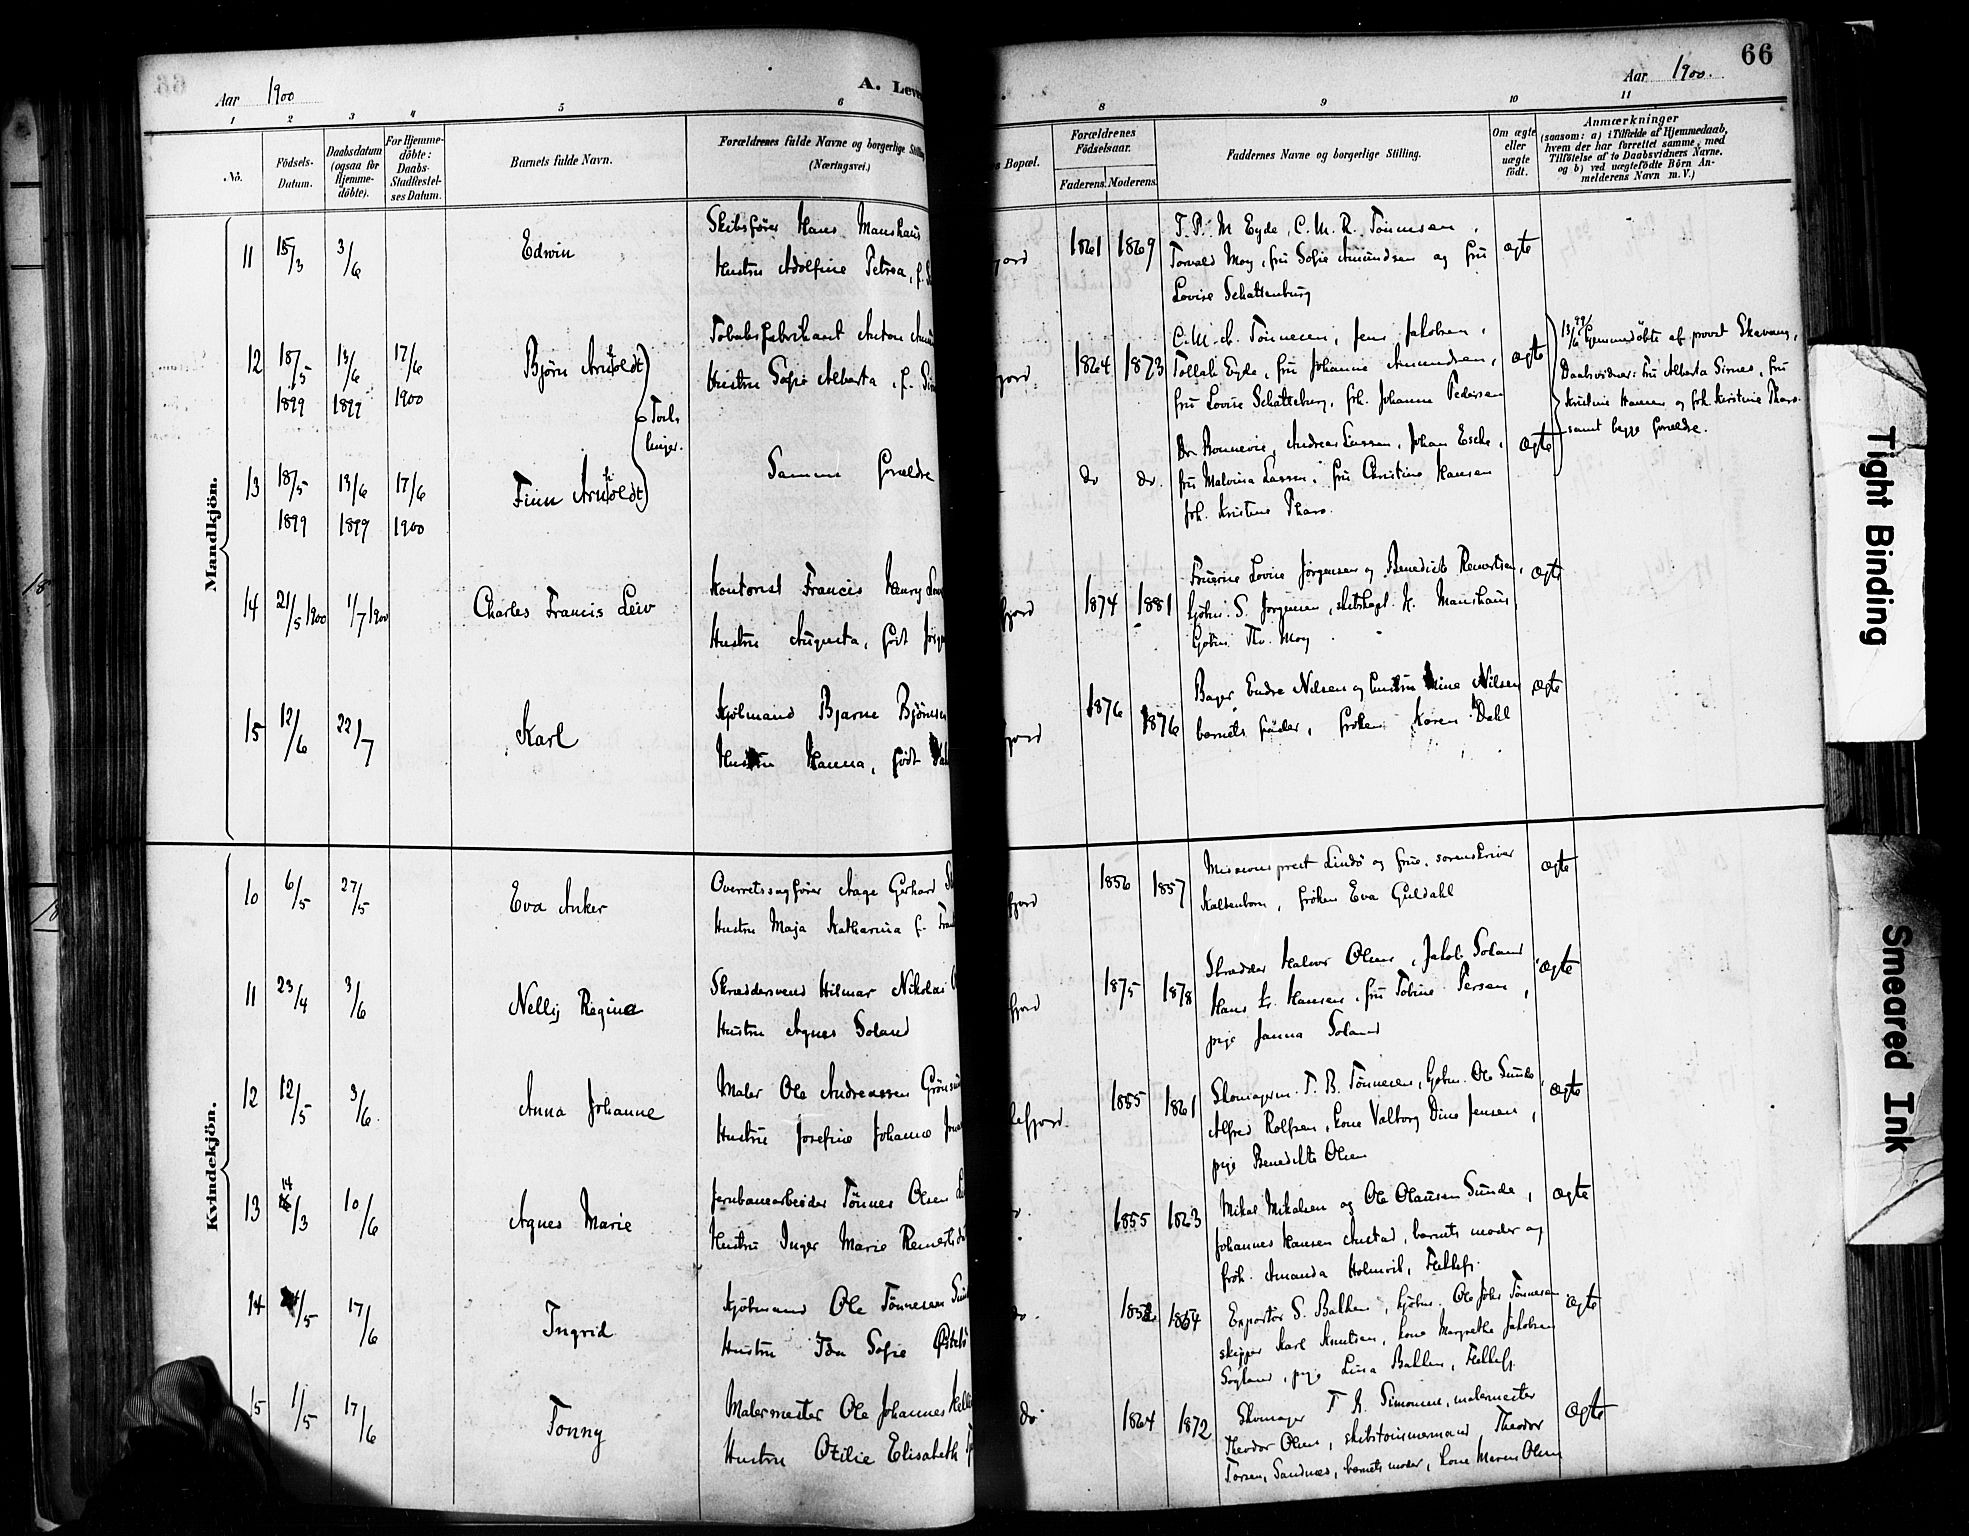 66
Aar 1900
A. Leve
Aar 1900.
1 2 3 4 5 6 8 9 10 11
No.
Födsels-Datum.
Daabsdatum (ogsaa för Hjemmedöbte).
For Hjemmedöbte: Daabs-Stadfæstelses Datum.
Barnets fulde Navn.
Forældrenes fulde Navne og borgerlige Stilling (Næringsvei.)
s Bopæl.
Forældrenes Födselsaar.
Faderens. Moderens.
Faddernes Navne og borgerlige Stilling.
Om ægte eller uægte födt.
Anmærkninger
(saasom: a) i Tilfælde af Hjemmedaab,
hvem der har forrettet samme, med
Tilföielse af to Daabsvidners Navne.
og b) ved uægtefödte Börn An-
melderens Navn m.V.)
Mandkjön.
11 15/3 3/6 Edwin
Skibsfører Hans Manshaus
Hustru Adolfine Petrea, f.
fjord 1861 1869
T. P. M. Eyde, C. M. R. Tönnesen,
Torvald Moy, fru Sofie Amundsen og fru
Lovise Schattenburg
ægte
12 18/5 1899 13/6 1899 17/6 1900 Bjørn Arnholdt
Tobaksfabrikant Anton
Hustru Sofie Alberta, f.
fjord. 1864 1873
C. M. Tönnesen, Jens Jakobsen,
Tollak Eyde, fru Johanne Amundsen,
fru Lovise Schattenburg, frk. Johanne Pedersen
ægte
13/6 99 hjemmedöbte af provst Skavang,
Daabsvidner: fru Alberta Sirnes, fru
Kristine Hansen og frk. Kristine Tharo
samt begge forældre.
Tvillinger.
13 18/5 1899 13/6 1899 17/6 1900 Finn Arnholdt
Samme forældre
do do.
Dr. Bonnevie, Andreas Lassen, Johan Esche,
fru Malvina Lassen, fru Christine Hansen
frk. Kristine Tharo.
ægte
14 21/5 1900 1/7 1900 Charles Francis Leiv
Kontorist Francis Henry
Hustru Augusta, født
fjord 1874 1881
Fruerne Lovise Jørgensen og Benedicte
kjøbm. S. Jørgensen, skibskapt. H. Manshaus
Kjøbm. Th. Moy
ægte
15 12/6 22/7 Karl
Kjøbmand Bjarne Bjørnsen
Hustru Hanna, født
fjord 1876 1876
Bager Endre Nilsen og hustru Mine Nilsen
barnets fader, frøken Karen Dahl
ægte
Kvindekjön.
10 6/5 27/5 Eva Anker
Overretssagfører Aage Gerhard
Hustru Maja Katharina f.
fjord 1856 1857
Missionsprest Lindø og frue, sorenskriver
Kaltenborn, frøken Eva Guldahl
ægte
11 23/4 3/6 Nelly Regine
Skræddersvend Hilmar Nikolai
Hustru Agnes Soland
fjord 1875 1878
Skrædder Halvor Olsen, Jakob Soland
Hans Kr. Hansen, fru Tobine Tersen,
pige Janna Soland
ægte
12 12/5 3/6. Anna Johanne
Maler Ole Andreassen
Hustru Josefine Johanne
lefjord. 1855 1861
Skomagerm. T. B. Tönnesen, kjøbm. Ole Sunde,
Alfred Rolfsen, kone Valborg Dine Jensen,
pige Benedikte Olsen
ægte
13 14/3 10/6 Agnes Marie
Jernbanearbeider Tønnes Olsen
Hustru Inger Marie
1855 1863
Mikal Mikalsen og Ole Olausen Sunde,
Johannes Hansen Austad, barnets moder og
frøk. Amanda Holmvik, Flekkefj.
ægte
14 /5 17/6 Ingrid
Kjøbmand Ole Tønnesen
Hustru Ida Sofie
do. 1852 1864
Exportør S. Bakken, kjøbm. Ole Johs Tønnesen
skipper Karl Knutsen, kone Margrethe Jakobsen
Sogland, pige Lina Bakken, Flekkefj.
ægte
15 1/5 17/6 Tonny
Malermester Ole Johannes
Hustru Otilie Elisabeth
do. 1864 1872
Skomager T. A. Simonsen, malermester
Theodor Olsen, skibstømmermand Theodor
Torsen, Sandnes, barnets moder, kone Maren Olsen
ægte
Tight Binding
Smeared Ink